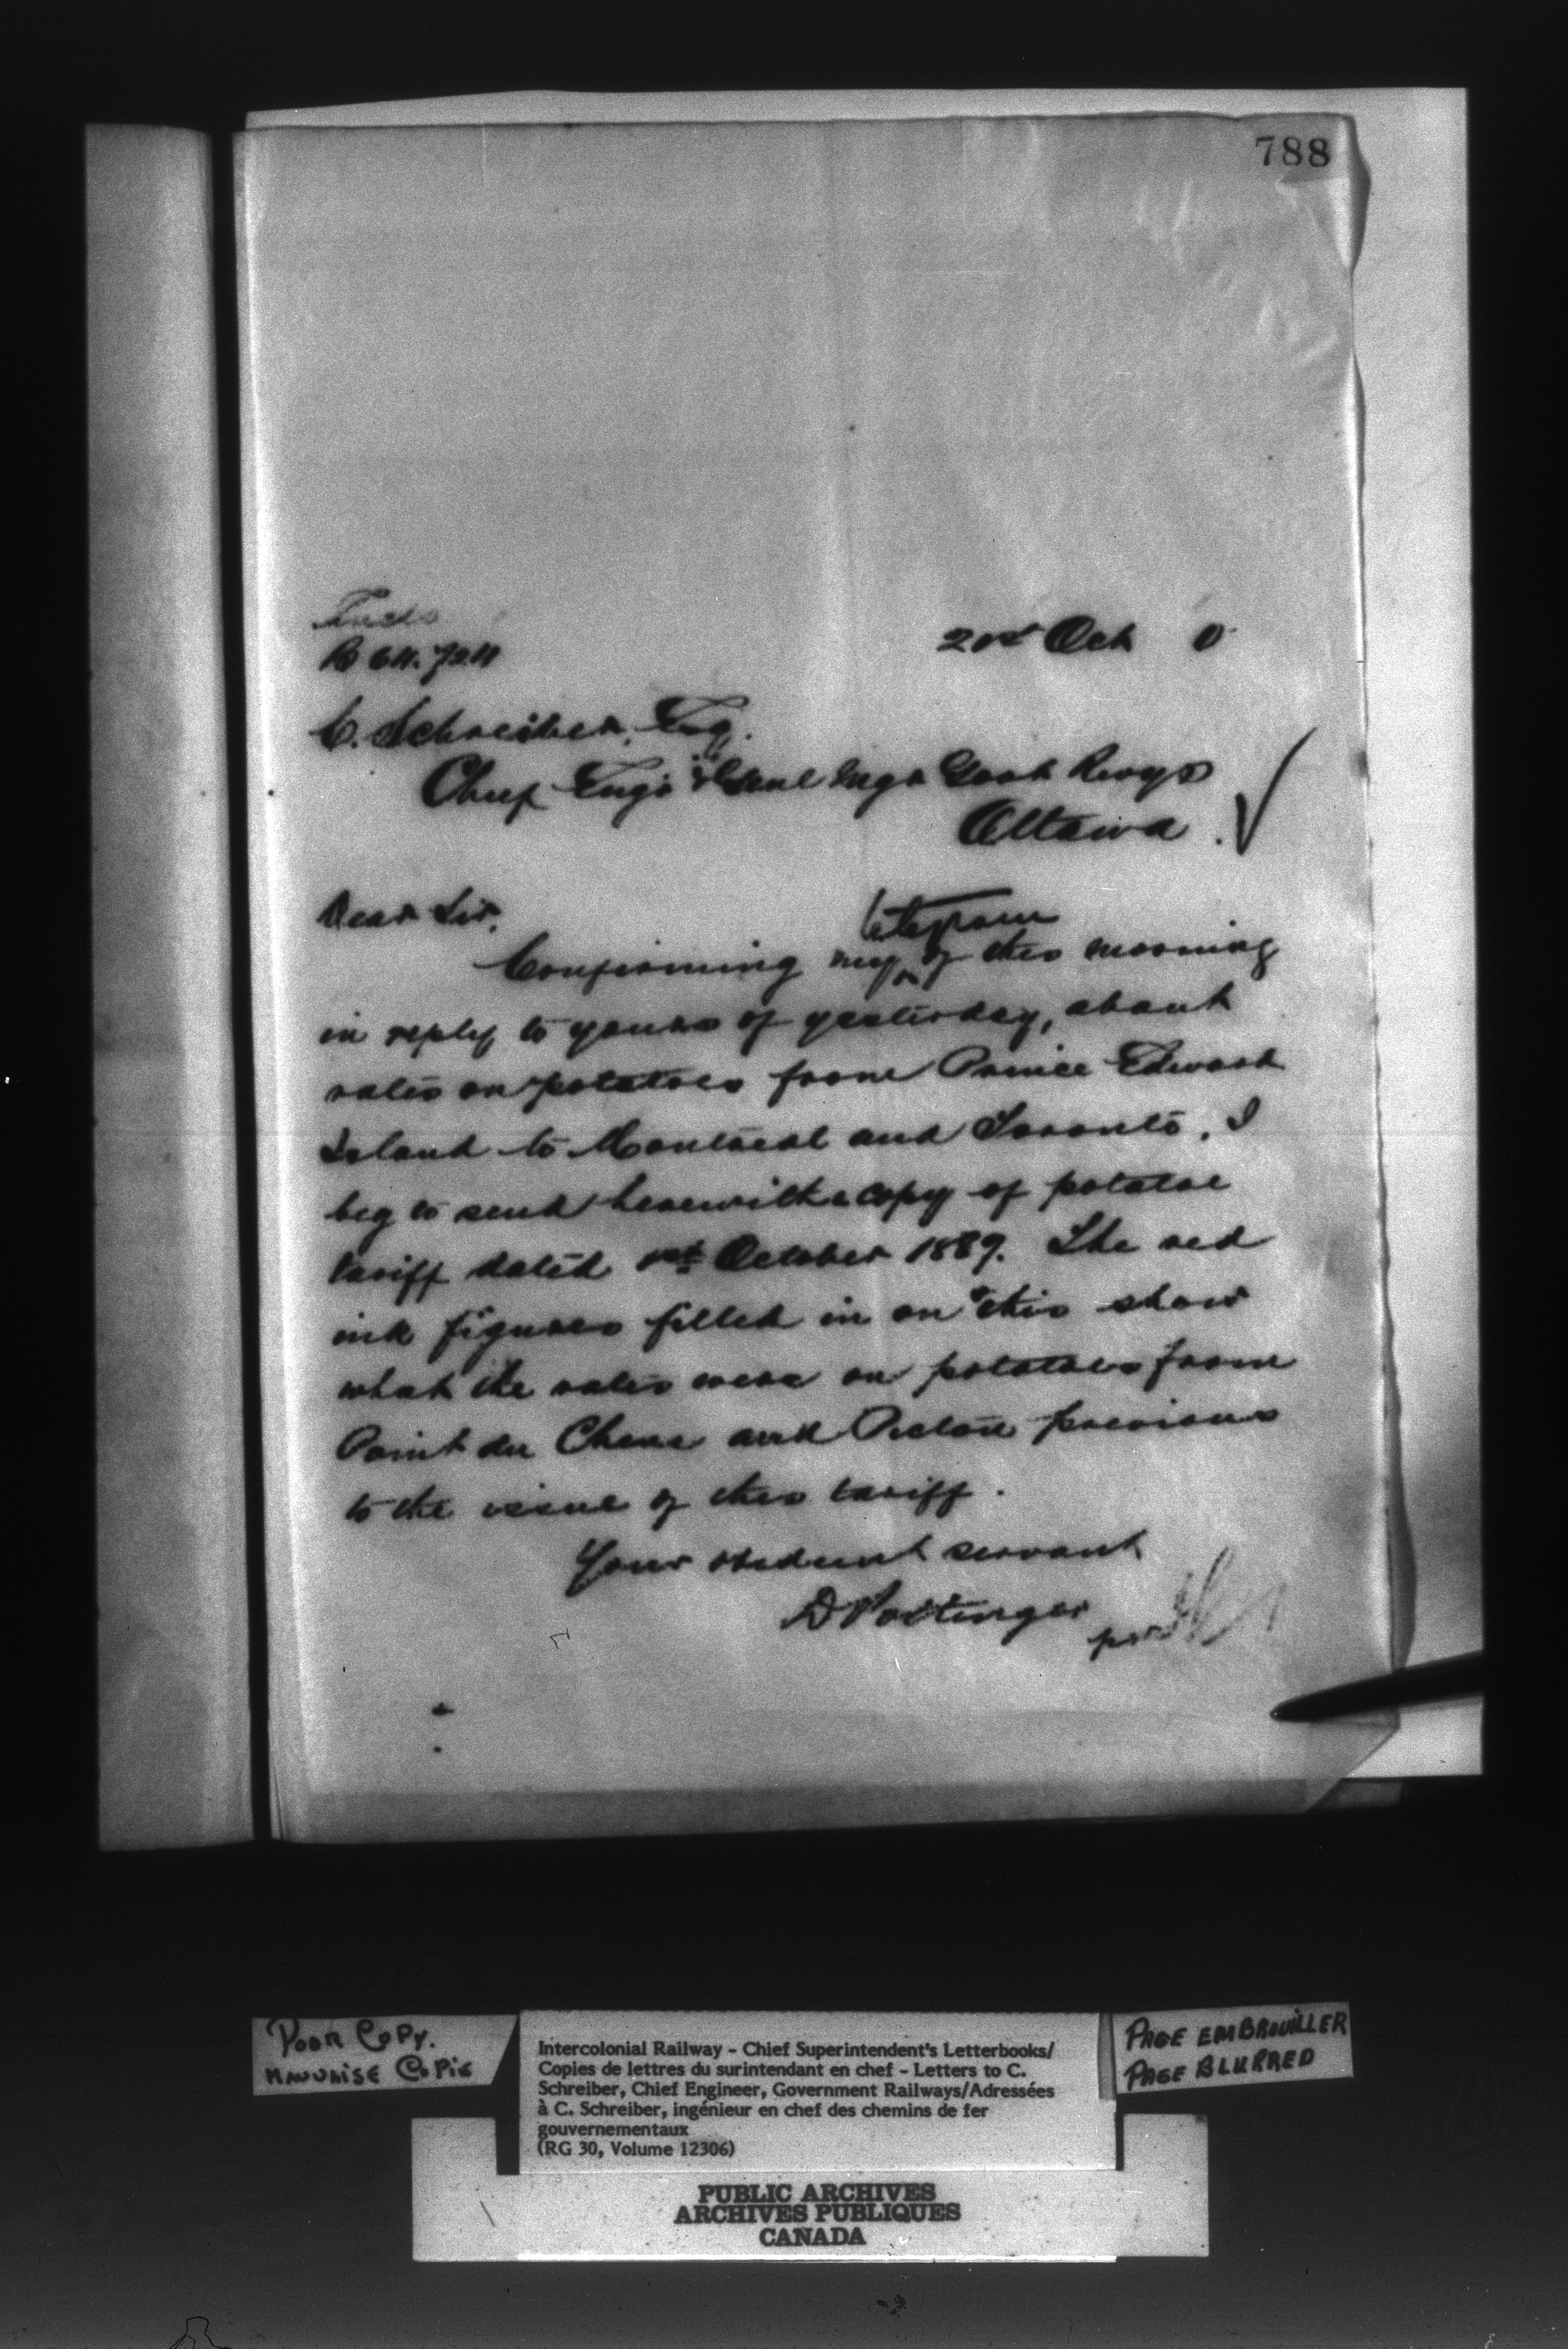 788
21st Oct 0
C. Schreiber, Esq.
Chief Engr & Genl Mgr Govt Rwys
Ottawa.
Dear Sir,
telegram
Confirming my ^ of this morning
in reply to yours of yesterday, about
rates on potatoes from Prince Edward
Island to Montreal and Toronto, I
beg to send herewith a copy of potatoe
tariff dated 1st October 1889. The red
ink figures filled in on this show
what the rates were on potatoes from
Point du Chene and Pictou previous
to the issue of this tariff.
Your obedient servant
D Pottinger
per
POOR COPY.
MAUVAISE COPIE
Intercolonial Railway - Chief Superintendent's Letterbooks/
Copies de lettres du surintendant en chef - Letters to C.
Schreiber, Chief Engineer, Government Railways/Adressées
à C. Schreiber, ingénieur en chef des chemins de fer
gouvernementaux
(RG 30, Volume 12306)
PAGE EMBROUILLER
PAGE BLURRED
PUBLIC ARCHIVES
ARCHIVES PUBLIQUES
CANADA